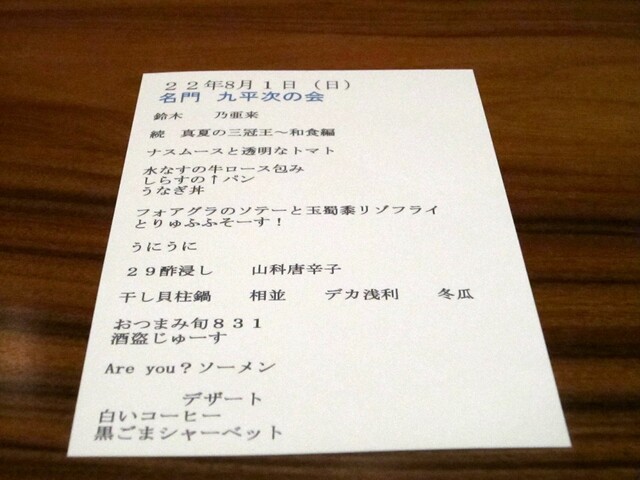 ２２年8月１日（日）
名門　九平次の会
鈴木　　乃亜来
続　真夏の三冠王～和食編
ナスムースと透明なトマト
水なすの牛ロース包み
しらすの↑パン
うなぎ丼
フォアグラのソテーと玉蜀黍リゾフライ
とりゅふふそーす！
うにうに
２９酢浸し　　山科唐辛子
干し貝柱鍋　　相並　　デカ浅利　　冬瓜
おつまみ旬８３１
酒盗じゅーす
Are you？ソーメン
デザート
白いコーヒー
黒ごまシャーベット